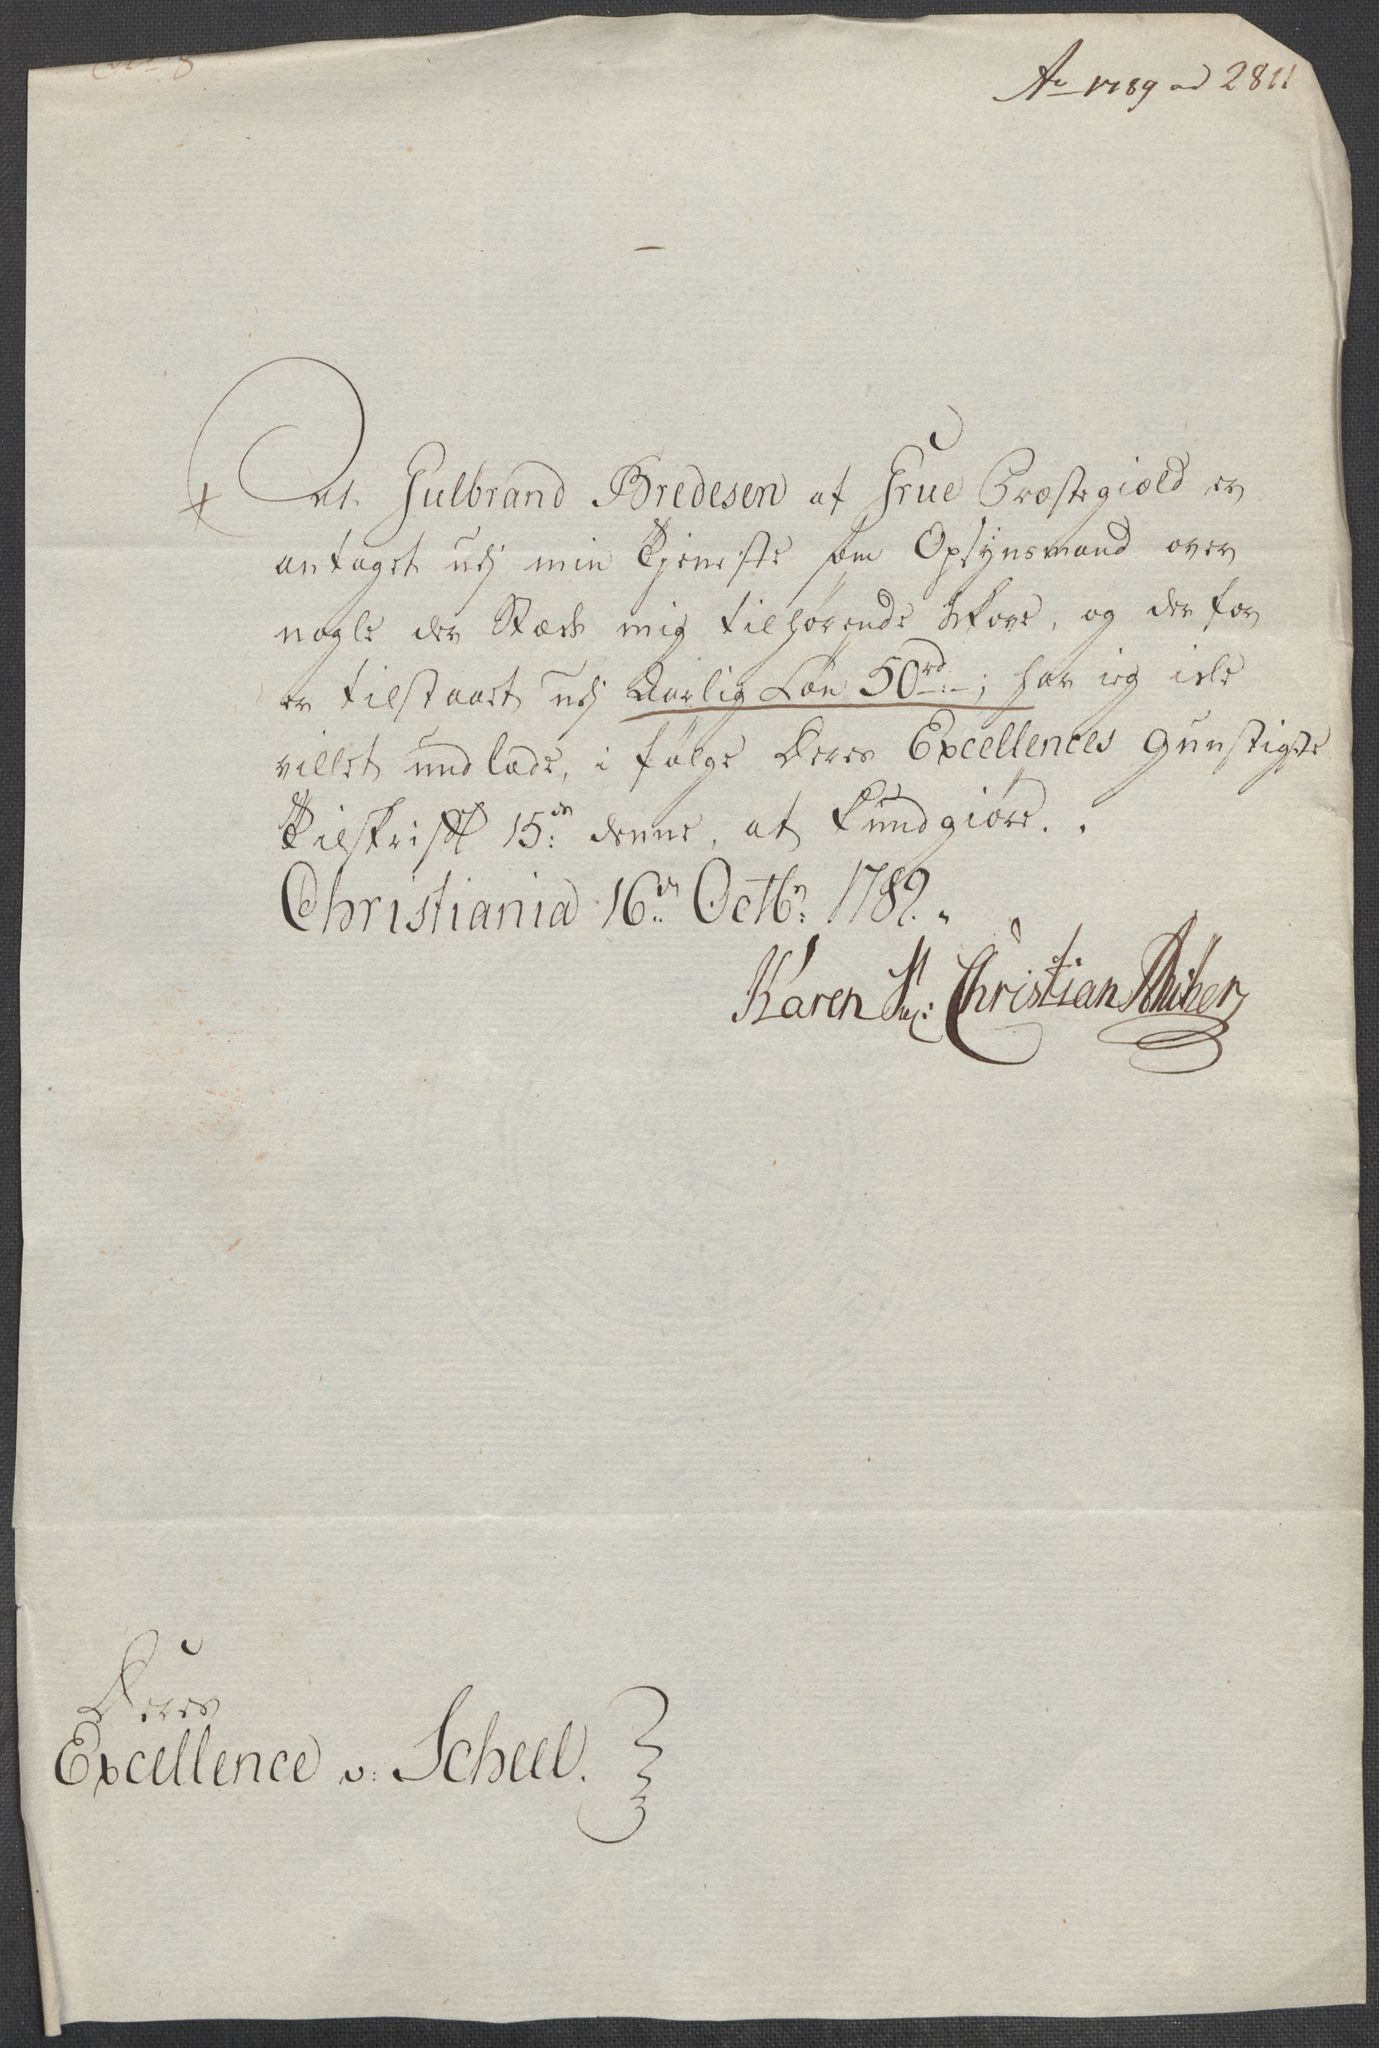 No 8
Ao 1789 ad 2811
At Gulbrand Bredesen af Grue Præstegiæld er
antaget udj min Tjeneste som Opsynsmand over
nogle der Stæds mig tilhørende Skove, og derfor
er tilstaaet udj Aarlig Løn 50 rd:-; har ieg icke
villet undlade, i følge Deres Excellences gunstigste
Tilskrift 15de denne, at kundgiøre..
Christiania 16de Octbr: 1789.
Karen Sl: Christian Ancher
Deres
Excellence v: Scheel.